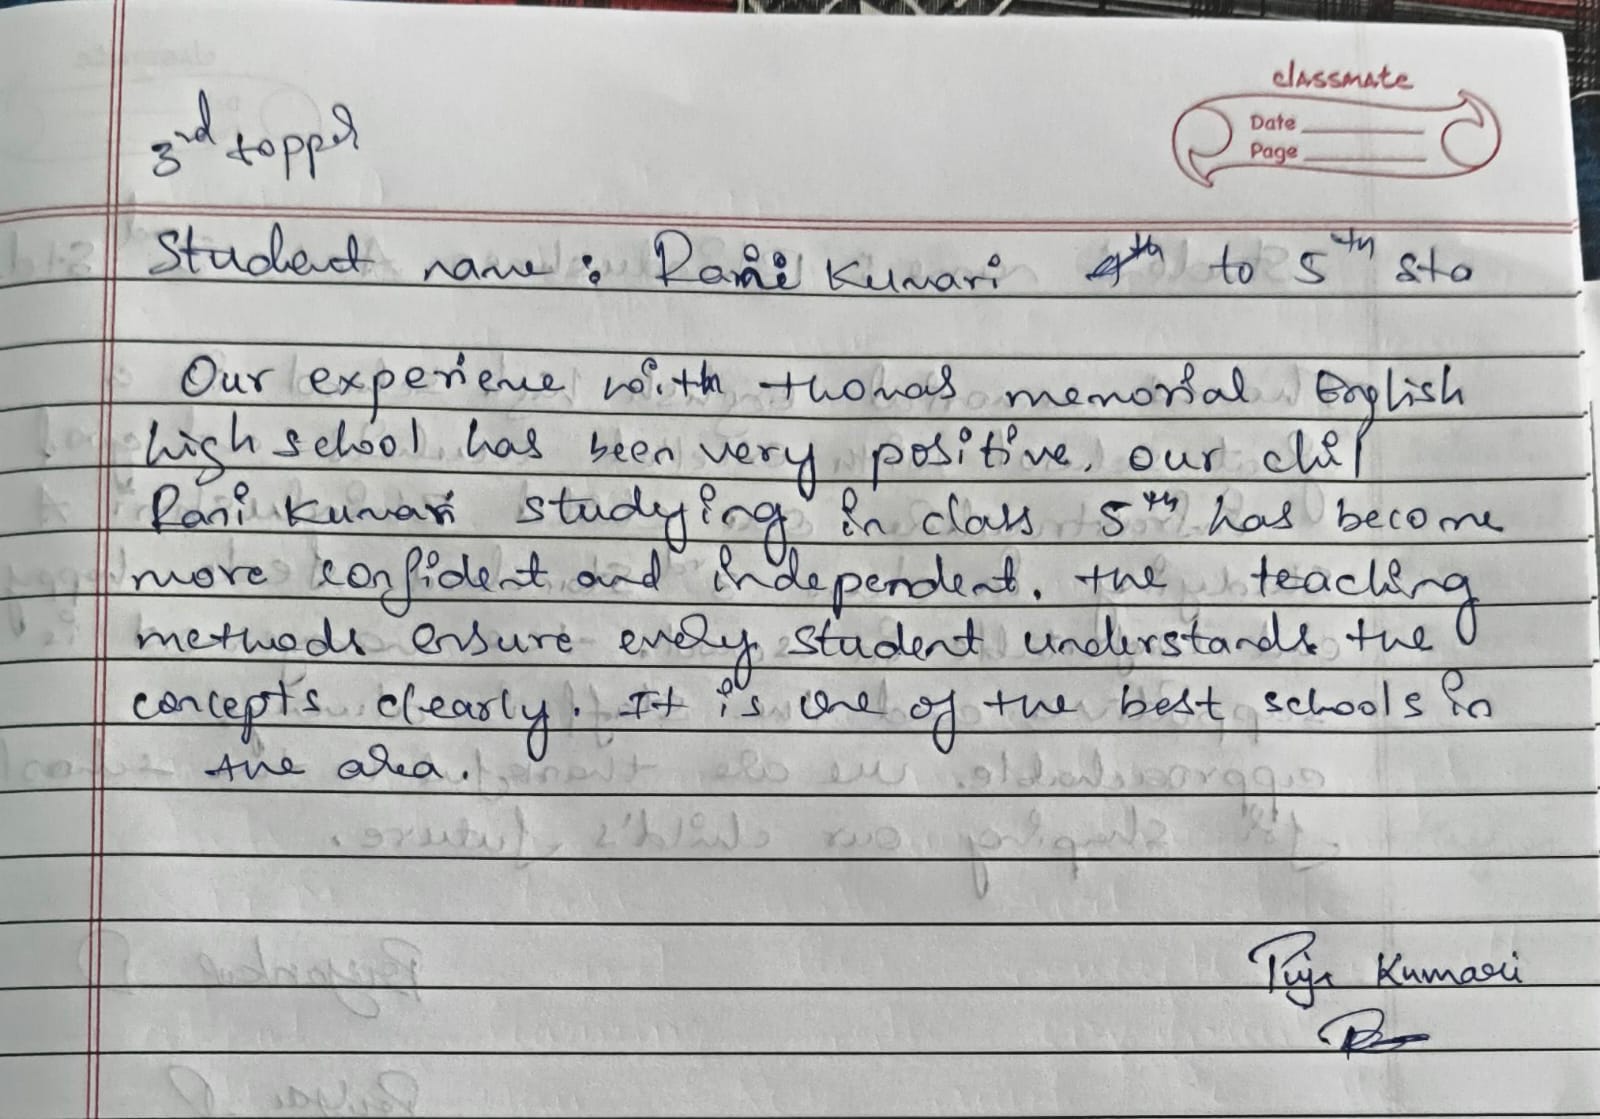 classmate
Date
Page
3rd topper
Student name : Rani Kumari 4th to 5th std
Our experience with thomas memorial English
high school has been very positive. our chil
Rani Kumari studying in class 5th has become
more confident and independent. the teaching
methods ensure every student understands the
concepts clearly. It is one of the best schools in
the area.
Puja Kumari